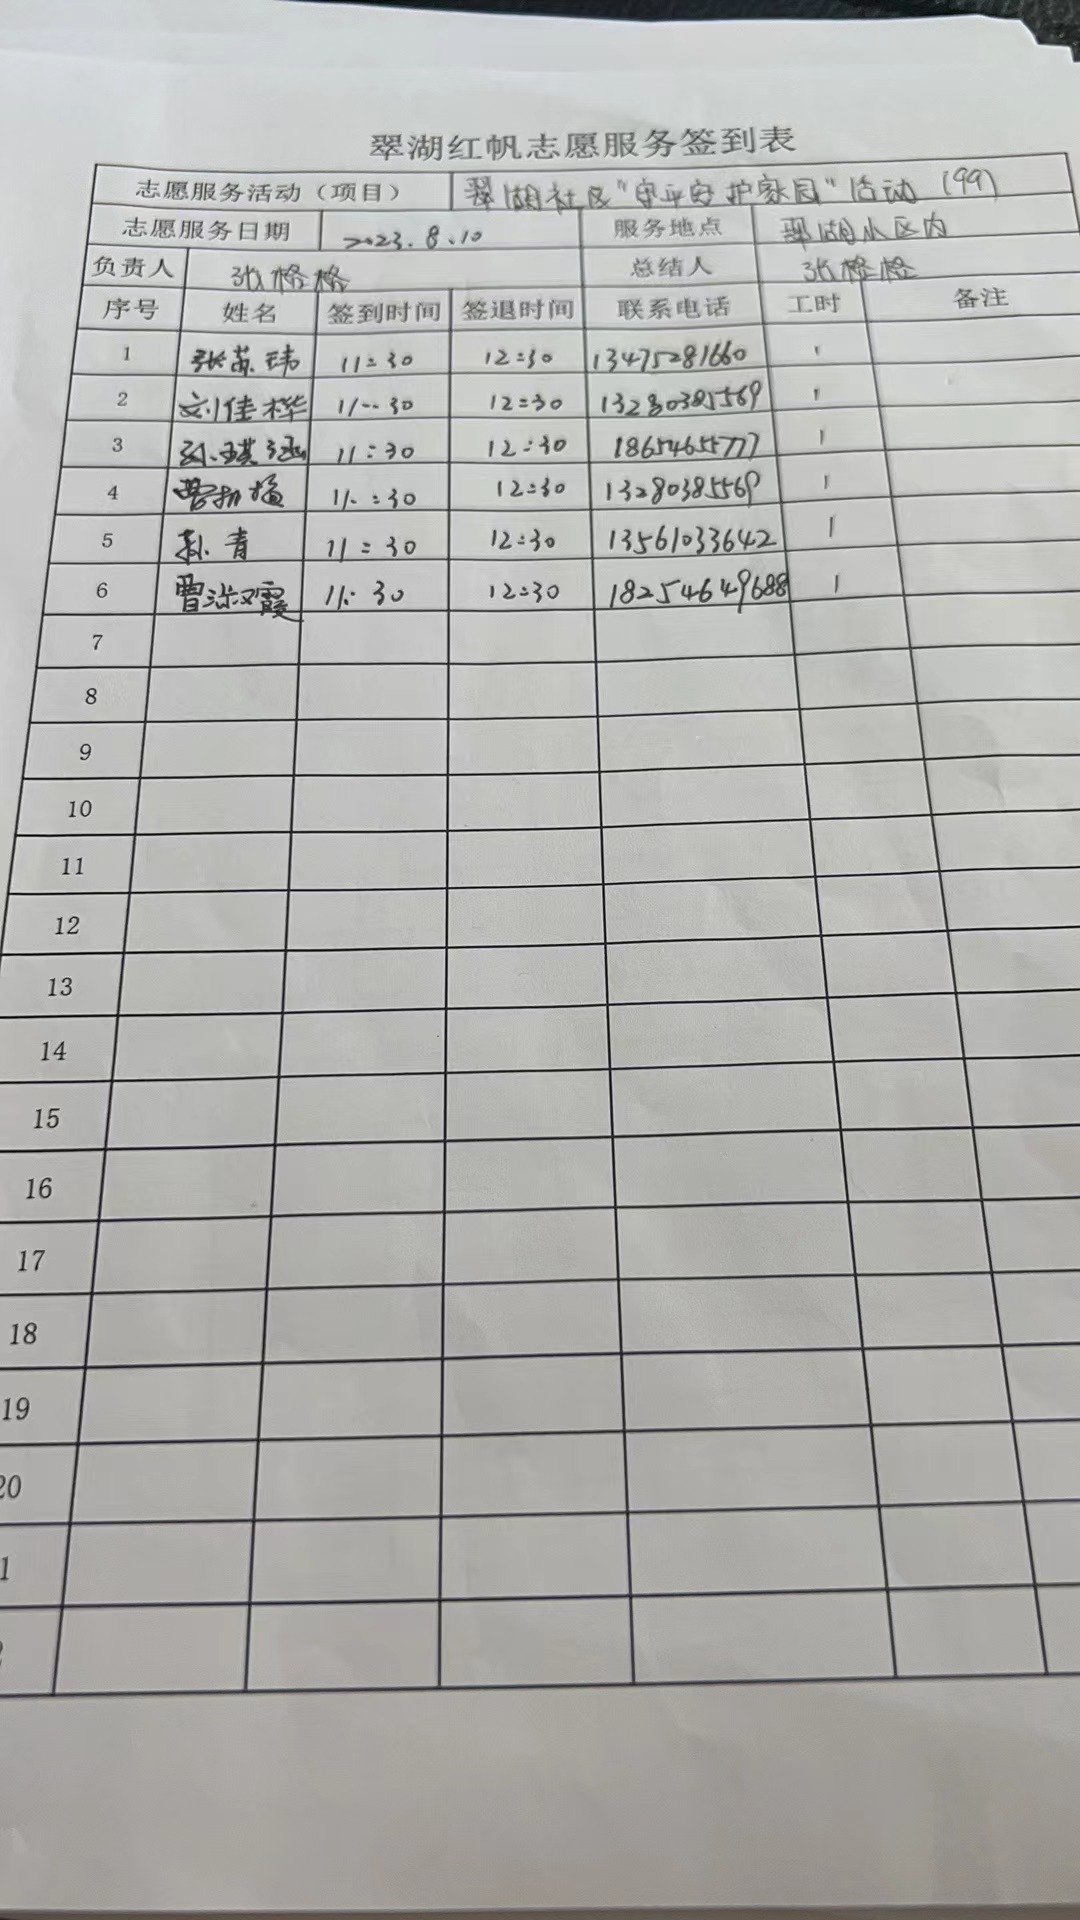 翠湖红帆志愿服务签到表
志愿服务活动（项目） 翠湖社区“守平安护家园”活动（99）
志愿服务日期 2023.8.10 服务地点 翠湖小区内
负责人 张格格 总结人 张格格
序号 姓名 签到时间 签退时间 联系电话 工时 备注
1 张苏玮 11:30 12:30 13475281660 1
2 刘佳桦 11:30 12:30 13280385569 1
3 孙琪涵 11:30 12:30 18654655777 1
4 11:30 12:30 13280385569 1
5 孙青 11:30 12:30 13561033642 1
6 曹淑霞 11:30 12:30 18254649688 1
7
8
9
10
11
12
13
14
15
16
17
18
19
20
1
2